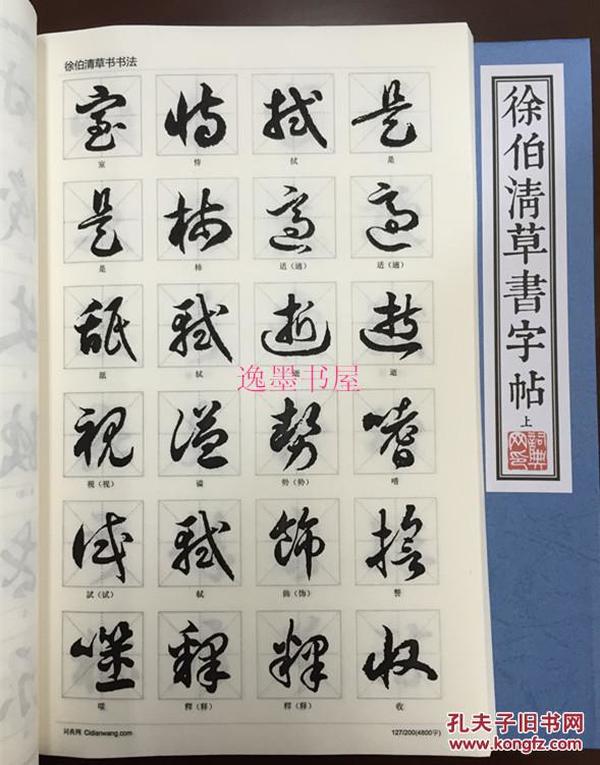 徐伯清草书书法
室 恃 拭 是
是 柿 适（適） 适（適）
舐 轼 逝 逝
視（视） 谥 势（勢） 嗜
試（试） 弑 飾（饰）
噬 釋（释） 釋（释） 收
词典网 Cidianwang.com 127/200(4800字)
徐伯清草書字帖
上
逸墨书屋
孔夫子旧书网
www.kongfz.com